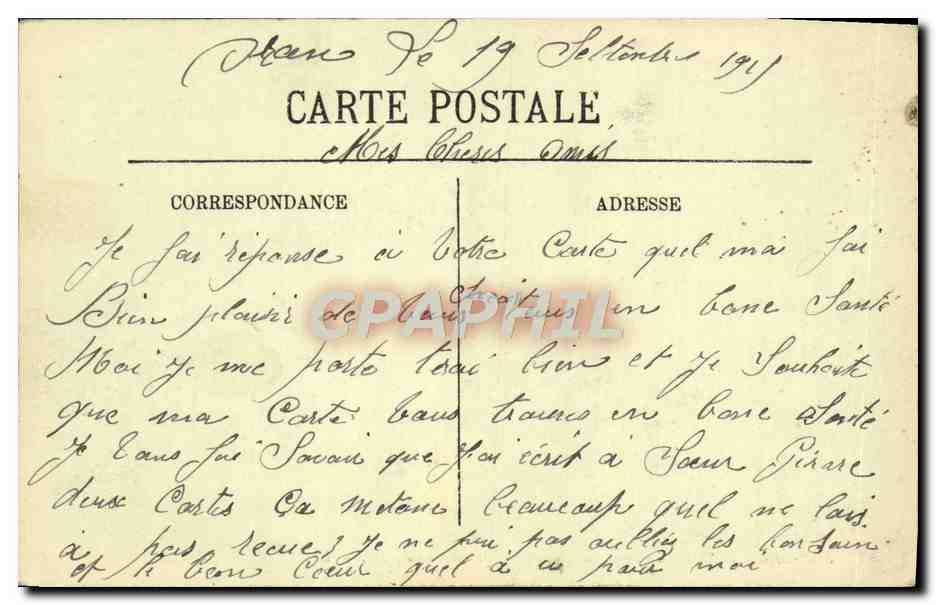 Oran Le 19 Seltembre 1915
CARTE POSTALE
Mes Cheres Amis
CORRESPONDANCE
ADRESSE
Je fai réponse a Votre Carte quel ma fai
Bien plaisir de Vous tous en bone Santé
CPAPHIL
Moi je me porte trai bien et je Souhaite
que ma Carte Vous trouves en bone Santé
Je Vous fai Savoir que J'ai écrit a Sœur Pierre
deux Cartes Ça métone beaucoup quel ne lais
a pas recue; Je ne pui pas oullier les bon Soin
et le bon Cœur quel a u pour moi